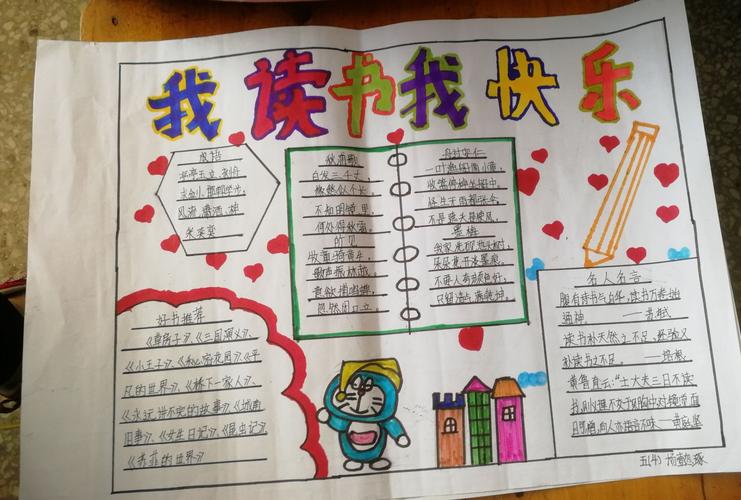 我读书我快乐
成语
亭亭玉立、
风流潇洒、神
采奕奕
秋浦歌
白发三千丈,
缘愁似个长。
不知明镜里,
何处得秋霜。
所见
牧童骑黄牛,
歌声振林樾。
意欲捕鸣蝉,
忽然闭口立。
舟过安仁
一叶渔船两小童,
收篙停棹坐船中。
怪生无雨都张伞,
不是遮头是使风。
墨梅
我家洗砚池头树,
朵朵花开淡墨痕。
不要人夸颜色好,
只留清气满乾坤。
好书推荐
《草房子》、《三国演义》、
《小王子》、《秘密花园》、《平
凡的世界》、《桥下一家人》、
《永远讲不完的故事》《城南
旧事》、《女生日记》、《昆虫记》
《苏菲的世界》
名人名言
腹有读书气自华,读书万卷始
通神。 ——苏轼
读书补天然之不足,经验又
补读书之不足。 ——培根
黄鲁直云:“士大夫三日不读
五(4)